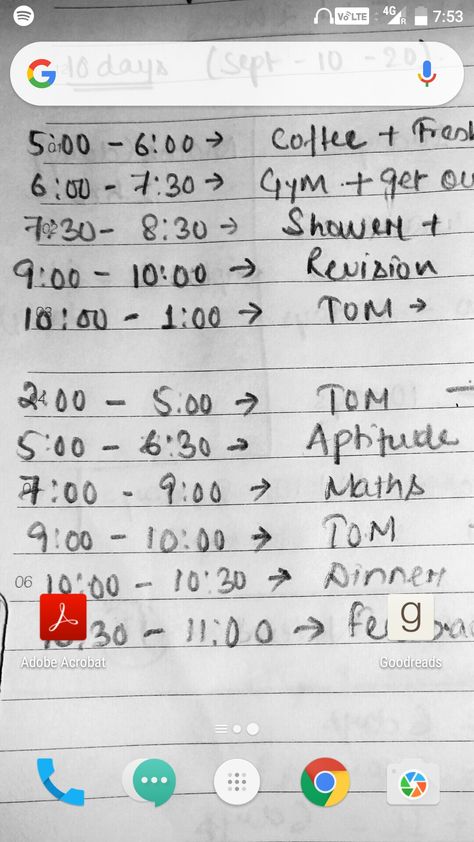 VoLTE 4G R 7:53
G
10 days (Sept - 10 - 20)
5:00 - 6:00 → Coffee + Fresh
6:00 - 7:30 → Gym + get ou
7:30 - 8:30 → Shower +
9:00 - 10:00 → Revision
10:00 - 1:00 → TOM →
2:00 - 5:00 → TOM
5:00 - 6:30 → Aptitude
7:00 - 9:00 → Maths
9:00 - 10:00 → TOM
06 10:00 - 10:30 → Dinner
10:30 - 11:00 →
g
Adobe Acrobat Goodreads